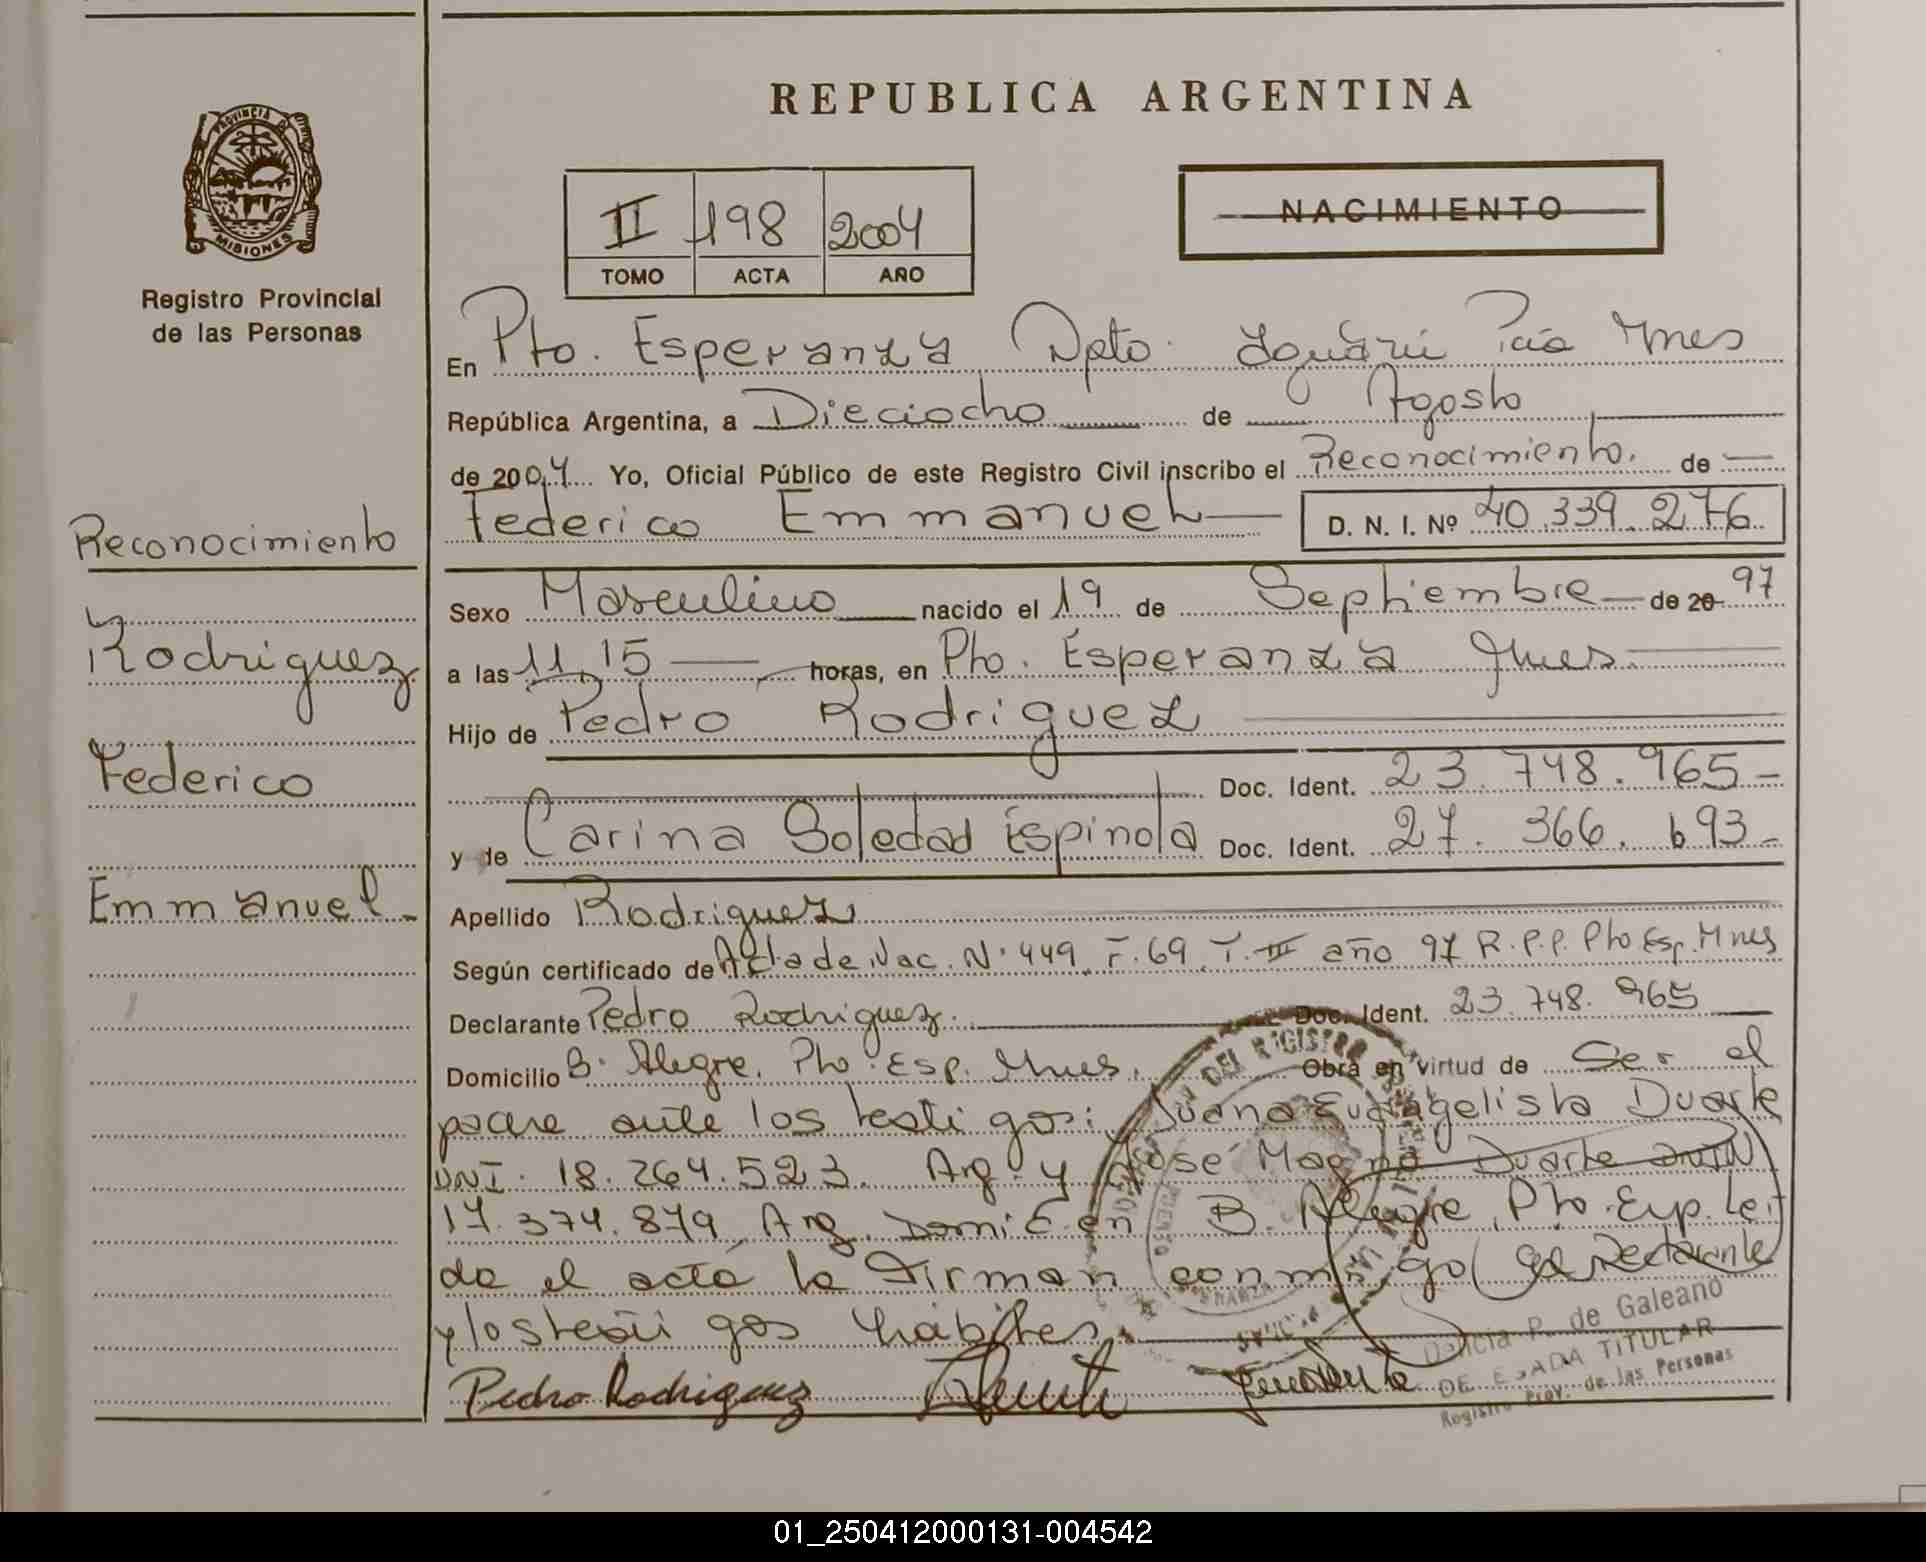 REPUBLICA ARGENTINA
PROVINCIA DE
MISIONES
Registro Provincial
de las Personas
II 198 2004
TOMO ACTA AÑO
NACIMIENTO
En Pto. Esperanza Dpto. Iguazú Pcia Mnes
República Argentina, a Dieciocho de Agosto
de 2004 Yo, Oficial Público de este Registro Civil inscribo el Reconocimiento. de
Federico Emmanuel D. N. I. Nº 40.339.276
Reconocimiento
Rodriguez
Federico
Emmanuel
Sexo Masculino nacido el 19 de Septiembre de 20 97
a las 11,15 horas, en Pto. Esperanza Mnes
Hijo de Pedro Rodriguez
Doc. Ident. 23.748.965
y de Carina Soledad Espinola Doc. Ident. 27.366.693
Apellido Rodriguez
Según certificado de Acta de Nac. Nº 449 F. 69 T. III año 97 R.P.P. Pto Esp. Mnes
Declarante Pedro Rodriguez. Doc. Ident. 23.748.965
Domicilio Bº Alegre. Pto. Esp. Mnes. Obra en virtud de Ser el
padre ante los testigos: Juana Evangelista Duarte
DNI. 18.264.523. Arg. y José Magno Duarte DNI Nº
17.374.879 Arg. Domic. en B. Alegre Pto. Esp. Lei
da el acta la firman conmigo el Declarante
y los testigos hábiles
Pedro Rodriguez
DEL REGISTRO
Delicia P. de Galeano
DELEGADA TITULAR
Registro Prov. de las Personas
01_250412000131-004542